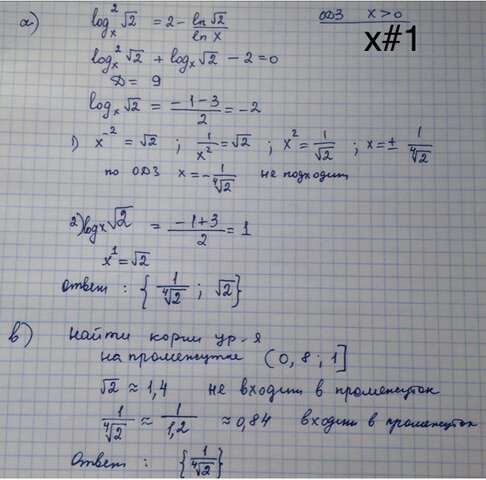 а) log²ₓ √2 = 2 - ln √2 / ln x
ОДЗ x > 0
x#1
log²ₓ √2 + logₓ √2 - 2 = 0
D = 9
logₓ √2 = (-1-3)/2 = -2
1) x⁻² = √2 ; 1/x² = √2 ; x² = 1/√2 ; x = ± 1/⁴√2
по ОДЗ x = - 1/⁴√2 не подходит
2) logₓ √2 = (-1+3)/2 = 1
x¹ = √2
Ответ : { 1/⁴√2 ; √2 }
в) Найти корни ур-я
на промежутке (0,8 ; 1]
√2 ≈ 1,4 не входит в промежуток
1/⁴√2 ≈ 1/1,2 ≈ 0,84 входит в промежуток
Ответ : { 1/⁴√2 }